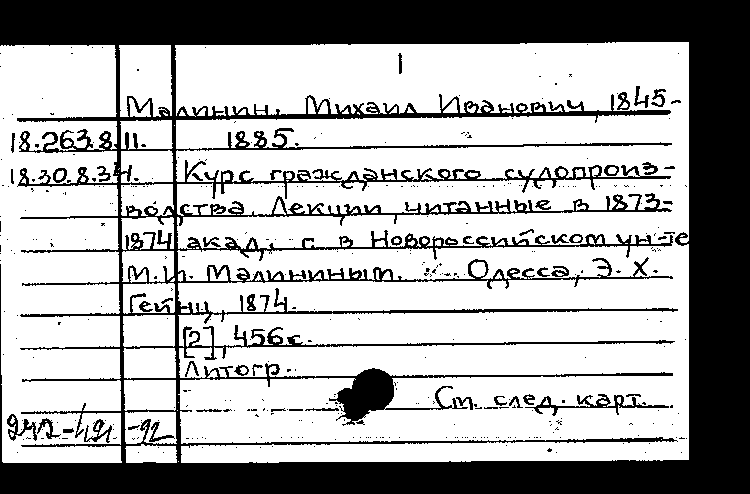 1
Малинин, Михаил Иванович, 1845-
18.263.8.11. 1885.
18.30.8.34. Курс гражданского судопроиз-
водства. Лекции, читанные в 1873-
1874 акад. г. в Новороссийском ун-те
М.И. Малининым. Одесса, Э. Х.
Гейнц, 1874.
[2], 456 с.
Литогр.
См. след. карт.
-92